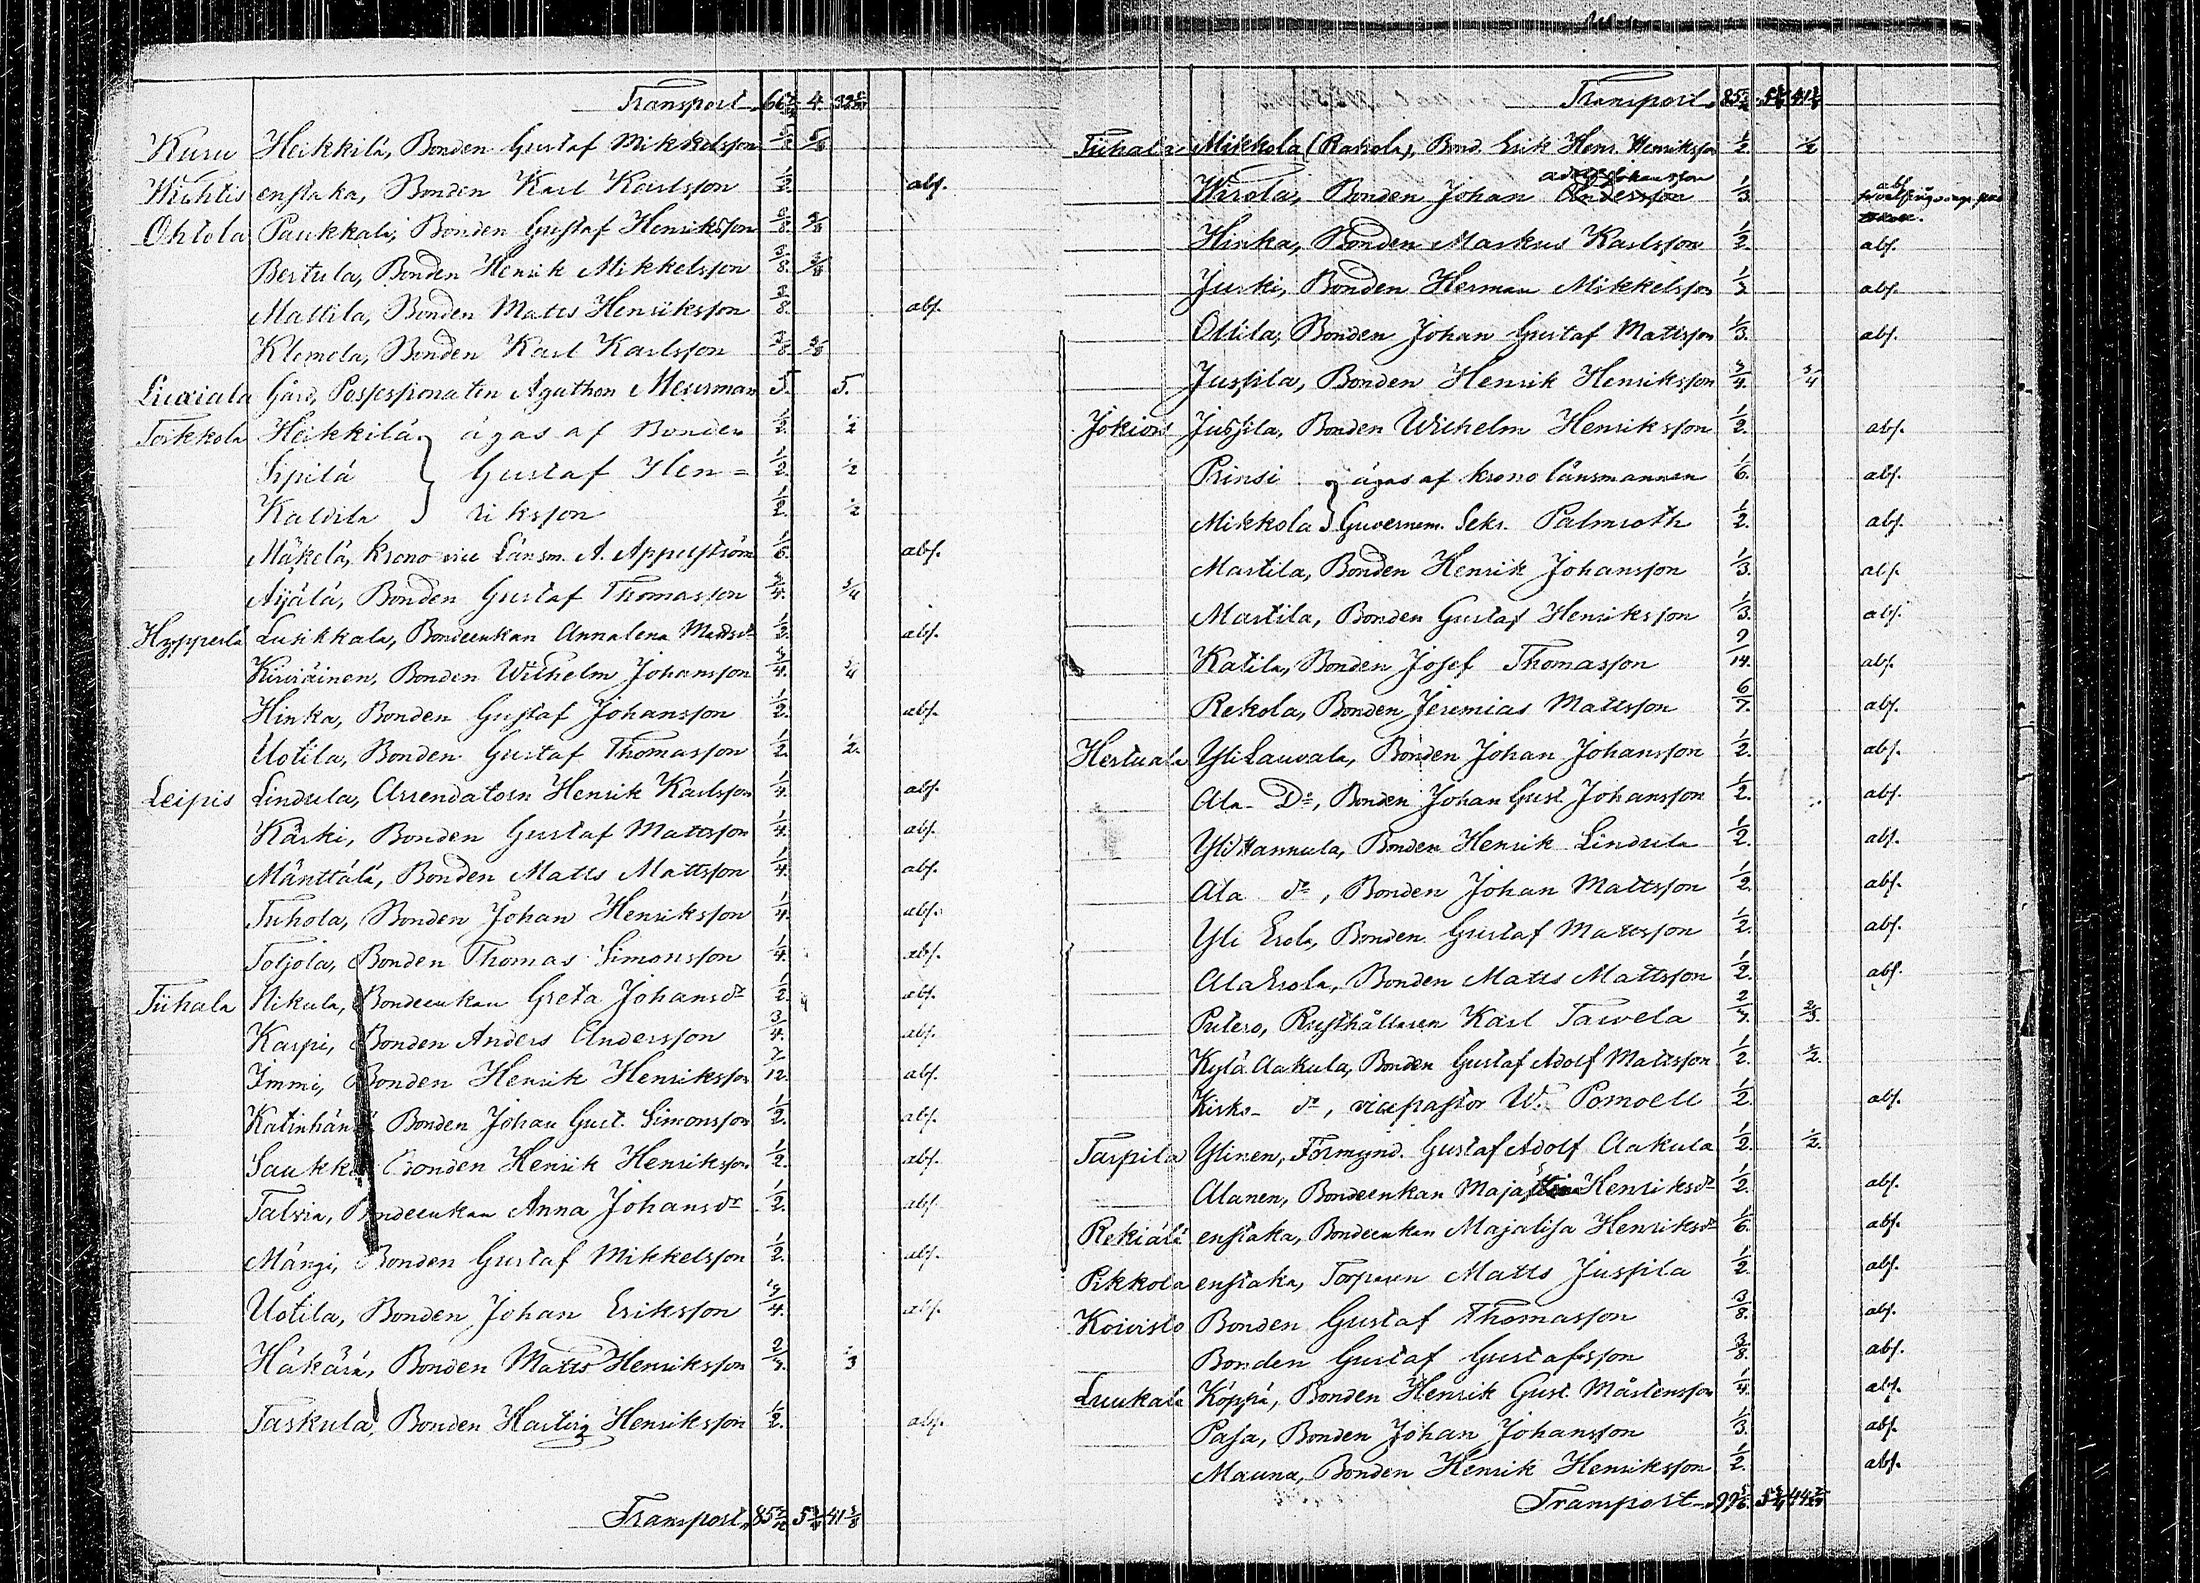 Transport 4
Kuru Heikkilä, Bonden Gustaf Mikkelsson 5/8 5/8
Wihtis enstaka, Bonden Karl Karlsson 1/2 abs.
Ohtola Paukkala, Bonden Gustaf Henriksson 3/8 3/8
Bertula, Bonden Henrik Mikkelsson 3/8 3/8
Mattila, Bonden Matts Henriksson 3/8 abs.
Klemola, Bonden Karl Karlsson 3/8 3/8
Liuxiala Gård, Possessionaten Agathon Meurman 5. 5.
Torkkola Heikkilä ägas af Bonden 1/2 1/2
Sipilä } Gustaf Hen= 1/2 1/2
Kaldila riksson 1/2 1/2
Mäkelä, Krono vice Länsm. A. Appelström 1/6 abs.
Äijälä, Bonden Gustaf Thomasson 3/4 3/4
Hypperlä Lusikkala, Bondeenkan Annalena Mattsdr abs.
Kiviäinen, Bonden Wilhelm Johansson 3/4 3/4
Hinka, Bonden Gustaf Johansson 1/2 abs.
Uotila, Bonden Gustaf Thomasson 1/2 1/2
Leipis Lindula, Arrendatorn Henrik Karlsson 1/4 abs.
Kärki, Bonden Gustaf Mattsson 1/4 abs.
Mänttälä, Bonden Matts Mattsson 1/4 abs.
Tuhola, Bonden Johan Henriksson 1/4 abs.
Toljola, Bonden Thomas Simonsson 1/4 abs.
Tiihala Nikula, Bondeenkan Greta Johansdr 1/2 abs.
Karpi, Bonden Anders Andersson 3/4 abs.
Immi, Bonden Henrik Henriksson 7/12 abs.
Bonden Johan Gust. Simonsson 1/2 abs.
Bonden Henrik Henriksson 1/2 abs.
Bondeenkan Anna Johansdr 1/2 abs.
Mängi, Bonden Gustaf Mikkelsson 1/2 abs.
Uotila, Bonden Johan Eriksson 3/4 abs.
Häkärä, Bonden Matts Henriksson 2/3
Taskula, Bonden Hartvig Henriksson 1/2 abs.
Transport
Transport
Tiihala Mikkola (Rakola), Bond. Erik Henr. Henriksson 1/2 1/2
Adolf Johansson
Wirola, Bonden Johan Andersson 1/3 abs.
Hinka, Bonden Markus Karlsson 1/2 abs.
Jurki, Bonden Herman Mikkelsson abs.
Ottila, Bonden Johan Gustaf Mattsson 1/3 abs.
Jussila, Bonden Henrik Henriksson 3/4 3/4
Jokiois Jussila, Bonden Wilhelm Henriksson 1/2 abs.
Prinsi } ägas af kronolänsmannen 1/6 abs.
Mikkola } Guvernem. Sekr. Palmroth 1/2 abs.
Martila, Bonden Henrik Johansson 1/3 abs.
Martila, Bonden Gustaf Henriksson 1/3 abs.
Katila, Bonden Josef Thomasson 9/14 abs.
Rekola, Bonden Jeremias Mattsson 6/7 abs.
Hertuala Yli Lauvala, Bonden Johan Johansson 1/2 abs.
Ala- Do, Bonden Johan Gust. Johansson 1/2 abs.
Yli Hannula, Bonden Henrik Lindula 1/2 abs.
Ala do, Bonden Johan Mattsson 1/2 abs.
Yli Erola, Bonden Gustaf Mattsson 1/2 abs.
Ala Erola, Bonden Matts Mattsson 1/2 abs.
Putero, Rusthållaren Karl Tawela 2/3 2/3
Kylä Aakula, Bonden Gustaf Adolf Mattsson 1/2 1/2
Kirko- do, vicepastor W. Pomoell 1/2 abs.
Tarpila Ylinen, Förmynd. Gustaf Adolf Aakula 1/2 1/2
Alanen, Bondeenkan Maja Henriksdr 1/2 abs.
Rekiälä enstaka, Bondeenkan Majalisa Henriksdr 1/6 abs.
Pikkola enstaka, Torparen Matts Jussila 1/2 abs.
Koivisto Bonden Gustaf Thomasson 3/8 abs.
Bonden Gustaf Gustafsson 3/8 abs.
Luukala Köppä, Bonden Henrik Gust. Mårtensson 1/4 abs.
Pasa, Bonden Johan Johansson 1/3 abs.
Mauna, Bonden Henrik Henriksson 1/2 abs.
Transport